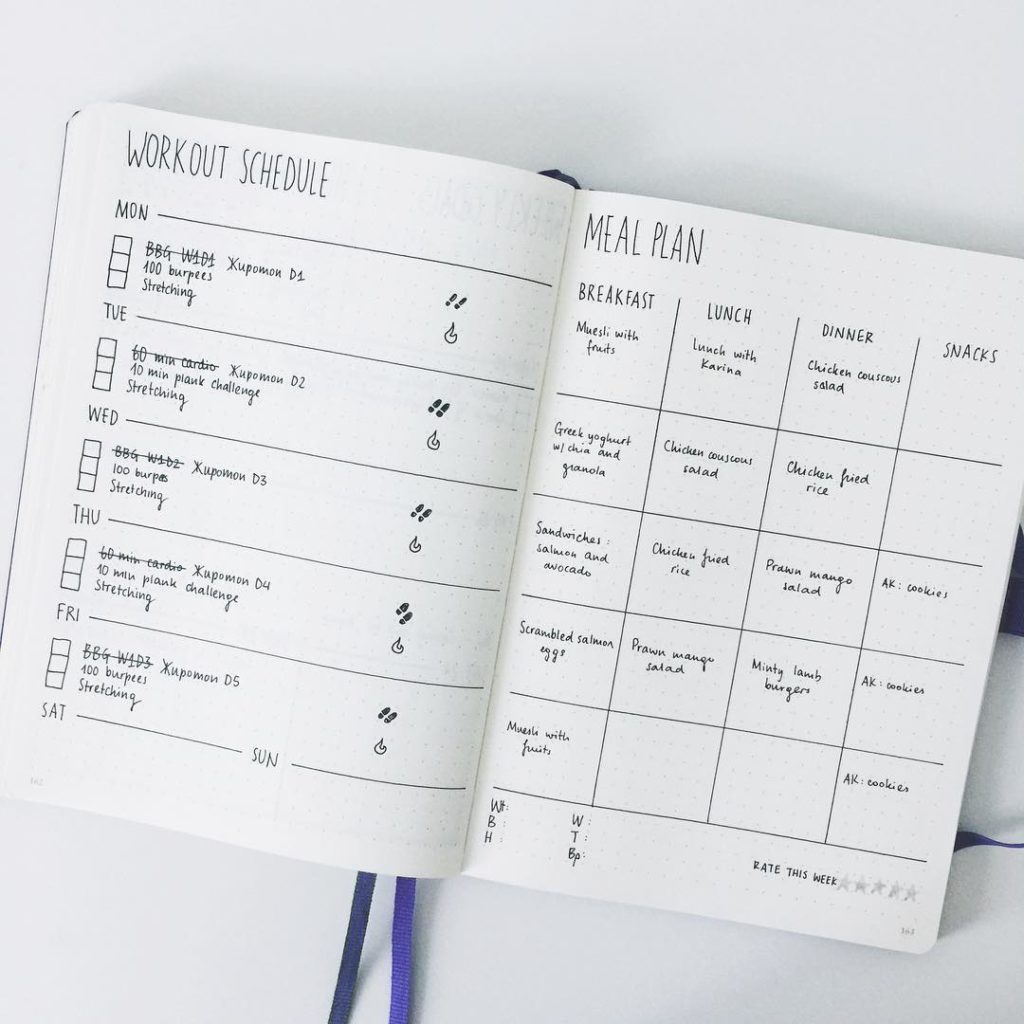 WORKOUT SCHEDULE
MON
BBG W1D1 Жиротоп D1
100 burpees
Stretching
TUE
60 min cardio Жиротоп D2
10 min plank challenge
Stretching
WED
BBG W1D2 Жиротоп D3
100 burpes
Stretching
THU
60 min cardio Жиротоп D4
10 min plank challenge
Stretching
FRI
BBG W1D3 Жиротоп D5
100 burpees
Stretching
SAT
SUN
162
MEAL PLAN
BREAKFAST
LUNCH
DINNER
SNACKS
Muesli with
fruits
Lunch with
Karina
Chicken couscous
salad
Greek yoghurt
w/ chia and
granola
Chicken couscous
salad
Chicken fried
rice
Sandwiches:
salmon and
avocado
Chicken fried
rice
Prawn mango
salad
AK: cookies
Scrambled salmon
eggs
Prawn mango
salad
Minty lamb
burgers
AK: cookies
Muesli with
fruits
AK: cookies
Wt:
B :
H :
W :
T :
Bp:
RATE THIS WEEK
163